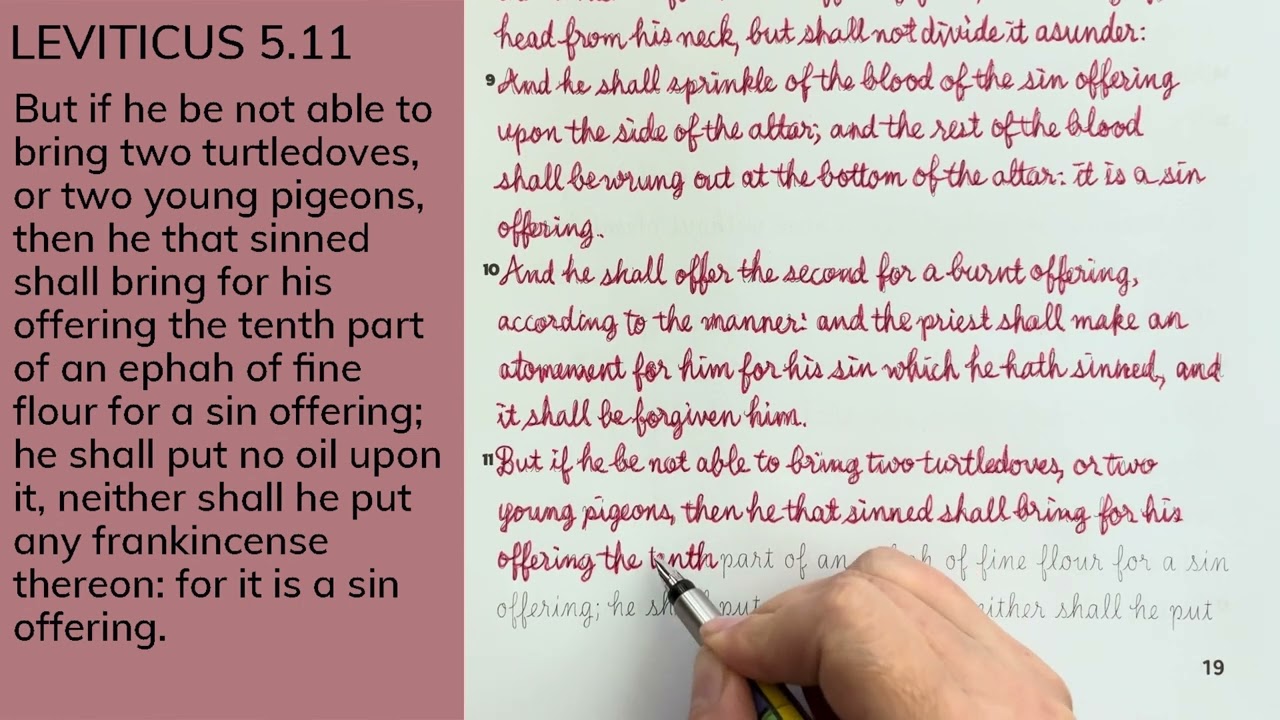 LEVITICUS 5.11
But if he be not able to
bring two turtledoves,
or two young pigeons,
then he that sinned
shall bring for his
offering the tenth part
of an ephah of fine
flour for a sin offering;
he shall put no oil upon
it, neither shall he put
any frankincense
thereon: for it is a sin
offering.
head from his neck, but shall not divide it asunder:
9 And he shall sprinkle of the blood of the sin offering
upon the side of the altar; and the rest of the blood
shall be wrung out at the bottom of the altar: it is a sin
offering.
10 And he shall offer the second for a burnt offering,
according to the manner: and the priest shall make an
atonement for him for his sin which he hath sinned, and
it shall be forgiven him.
11 But if he be not able to bring two turtledoves, or two
young pigeons, then he that sinned shall bring for his
offering the tenth part of an of fine flour for a sin
offering; he put neither shall he put
19